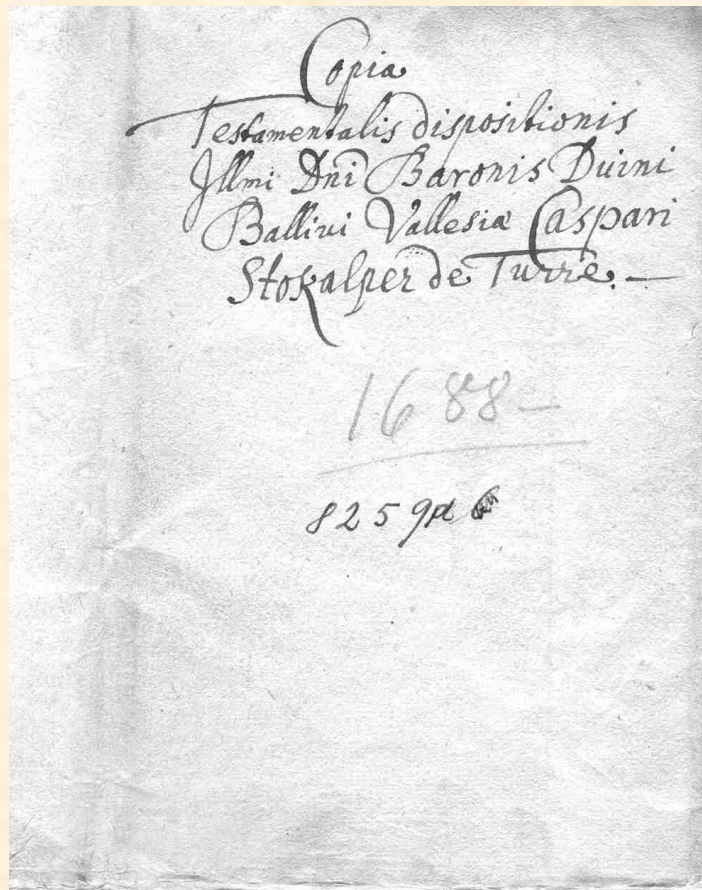 Copia
Testamentalis dispositionis
Jllmi Dni Baronis Duini
Ballivi Vallesiæ Caspari
Stokalper de Turre. —
1688-
8259